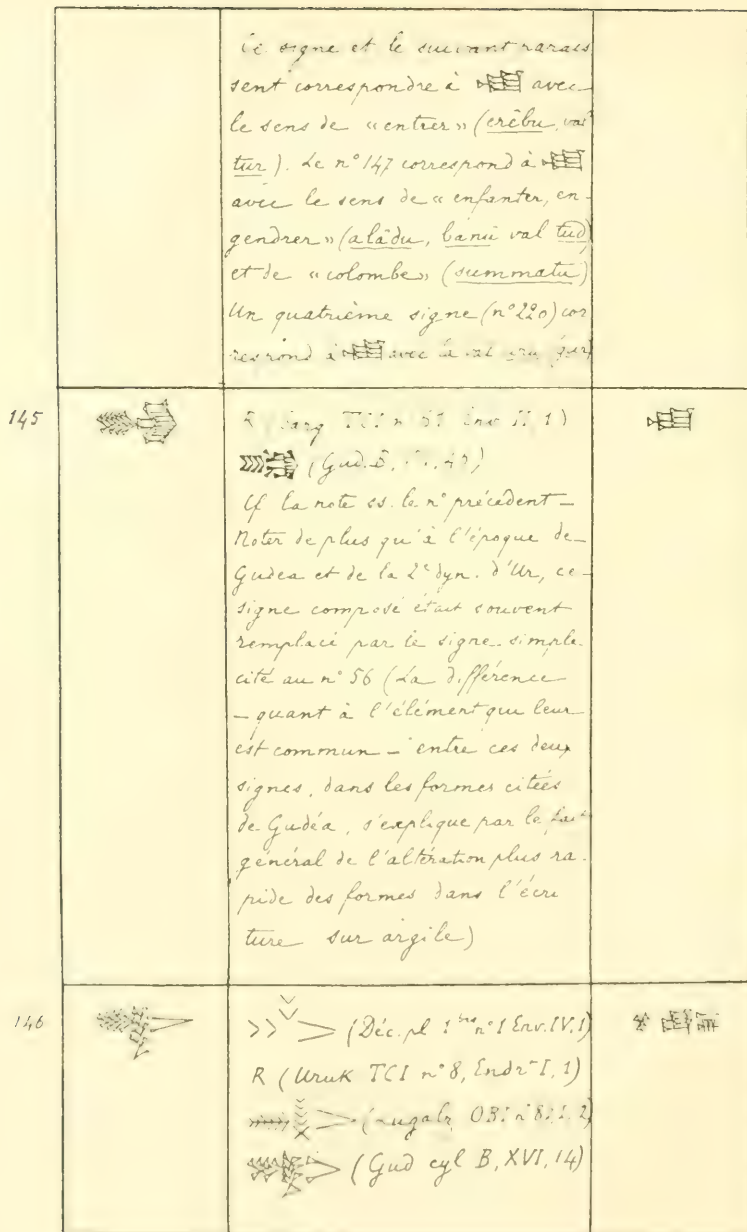 Ce signe et le suivant parais
sent correspondre à avec
le sens de « entrer » (erêbu, val
tur). Le n° 147 correspond à
avec le sens de « enfanter, en-
gendrer » (alâdu, banû val tud)
et de « colombe » (summatu)
Un quatrième signe (n° 220) cor
respond à avec la val
145
R TCI n° Env II, 1)
(Gud. B,
Cf la note ss. le n° précédent –
Noter de plus qu'à l'époque de
Gudea et de la 2e dyn. d'Ur, ce
signe composé était souvent
remplacé par le signe simple
cité au n° 56 (La différence
– quant à l'élément qui leur
est commun – entre ces deux
signes, dans les formes citées
de Gudéa, s'explique par le fait
général de l'altération plus ra
pide des formes dans l'écri
ture sur argile)
146
(Déc. pl 1 bis n° 1 Env. IV, 1)
R (Uruk TCI n° 8, Endr I, 1)
(Lugalz OBI n° 87, I, 2)
(Gud cyl B, XVI, 14)